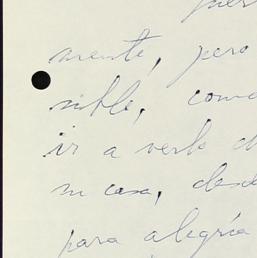 mente, pero
nible, como
ir a verlo d
su casa, desde
para alegría